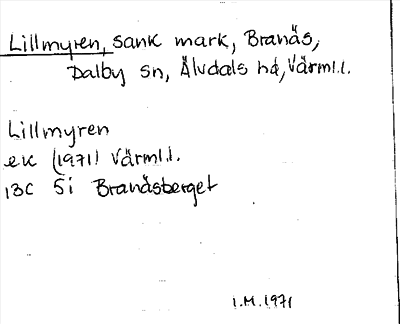 Lillmyren, sank mark, Branäs,
Dalby sn, Älvdals hd, Värml.l.
Lillmyren
ek (1971) Värml.l.
13C 5i Branäsberget
I.M. 1971